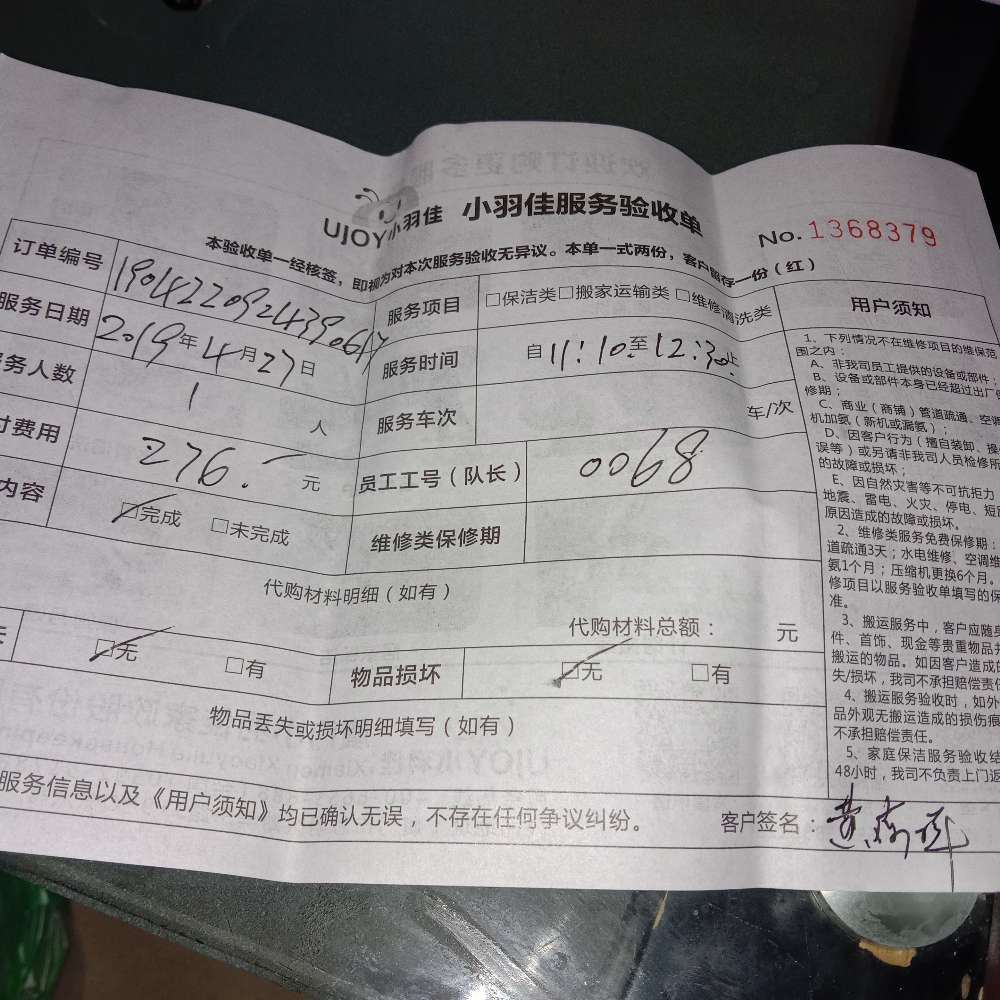 UJOY小羽佳 小羽佳服务验收单
No. 1368379
本验收单一经核签，即视为对本次服务验收无异议。本单一式两份，客户留存一份（红）
订单编号
服务项目 □保洁类□搬家运输类□维修清洗类
服务日期 2019年4月27日
服务时间 自11:10至12:30止
务人数 1 人
服务车次 车/次
付费用 276.- 元
员工工号（队长） 0068
内容 □完成 □未完成
维修类保修期
代购材料明细（如有）
代购材料总额： 元
□无 □有 物品损坏 □无 □有
物品丢失或损坏明细填写（如有）
服务信息以及《用户须知》均已确认无误，不存在任何争议纠纷。 客户签名：
用户须知
1、下列情况不在维修项目的维保范
围之内：
A、非我司员工提供的设备或部件；
B、设备或部件本身已经超过出厂
修期；
C、商业（商铺）管道疏通、空调
机加氨（新机或漏氨）；
D、因客户行为（擅自装卸、操
误等）或另请非我司人员检修所
的故障或损坏；
E、因自然灾害等不可抗拒力
地震、雷电、火灾、停电、短
原因造成的故障或损坏。
2、维修类服务免费保修期：
道疏通3天；水电维修、空调维
氨1个月；压缩机更换6个月。
修项目以服务验收单填写的保
准。
3、搬运服务中，客户应随身
件、首饰、现金等贵重物品并
搬运的物品。如因客户造成的
失/损坏，我司不承担赔偿责任
4、搬运服务验收时，如外
品外观无搬运造成的损伤痕
不承担赔偿责任。
5、家庭保洁服务验收结
48小时，我司不负责上门返